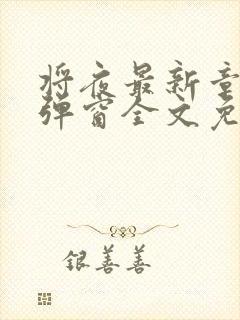 将夜最新章
弹窗全文免
银善善